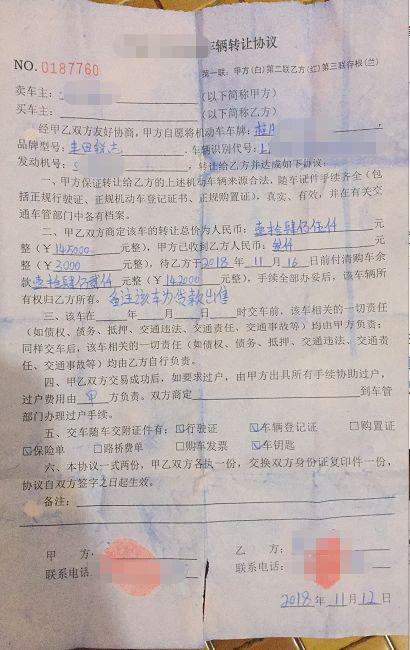 车辆转让协议
NO. 0187760 第一联：甲方(白)第二联乙方(红)第三联存根(兰)
卖车主： (以下简称甲方)
买车主： (以下简称乙方)
经甲乙双方友好协商，甲方自愿将机动车车牌：
品牌型号：丰田锐志 车辆识别代号：
发动机号： 转让给乙方并达成如下协议：
一、甲方保证转让给乙方的上述机动车辆来源合法，随车证件手续齐全(包
括正规行驶证、正规机动车登记证书、正规购置证)，真实、有效，并在有关交
通车管部门中备有档案。
二、甲乙双方商定该车的转让总价为人民币：壹拾肆万伍仟 元
整(￥145000 元整)，甲方已收到乙方人民币：叁仟 元
整(￥3000 元整)，待乙方于2018年11月16日前付清购车余
款壹拾肆万贰仟 元整(￥142000 元整)，手续全部办妥后，该车辆所
有权归乙方所有。备注该车为贷款出售
三、该车在 年 月 日 时交车前，该车相关的一切责任
(如债权、债务、抵押、交通违法、交通责任、交通事故等)均由甲方负责；
同样交车后，该车相关的一切责任(如债权、债务、抵押、交通违法、交通责
任、交通事故等)均由乙方自行负责。
四、甲乙双方交易成功后，如要求过户，由甲方出具所有手续协助过户，
过户费用由 甲 方负责。双方商定 到车管
部门办理过户手续。
五、交车随车交附证件有：☑行驶证 ☑车辆登记证 □购置证
☑保险单 □路桥费单 □购车发票 ☑车钥匙
六、本协议一式两份，甲乙双方各执一份，交换双方身份证复印件一份，
协议自双方签字之日起生效。
备注：
甲 方： 乙 方：
联系电话： 联系电话：
2018年11月12日